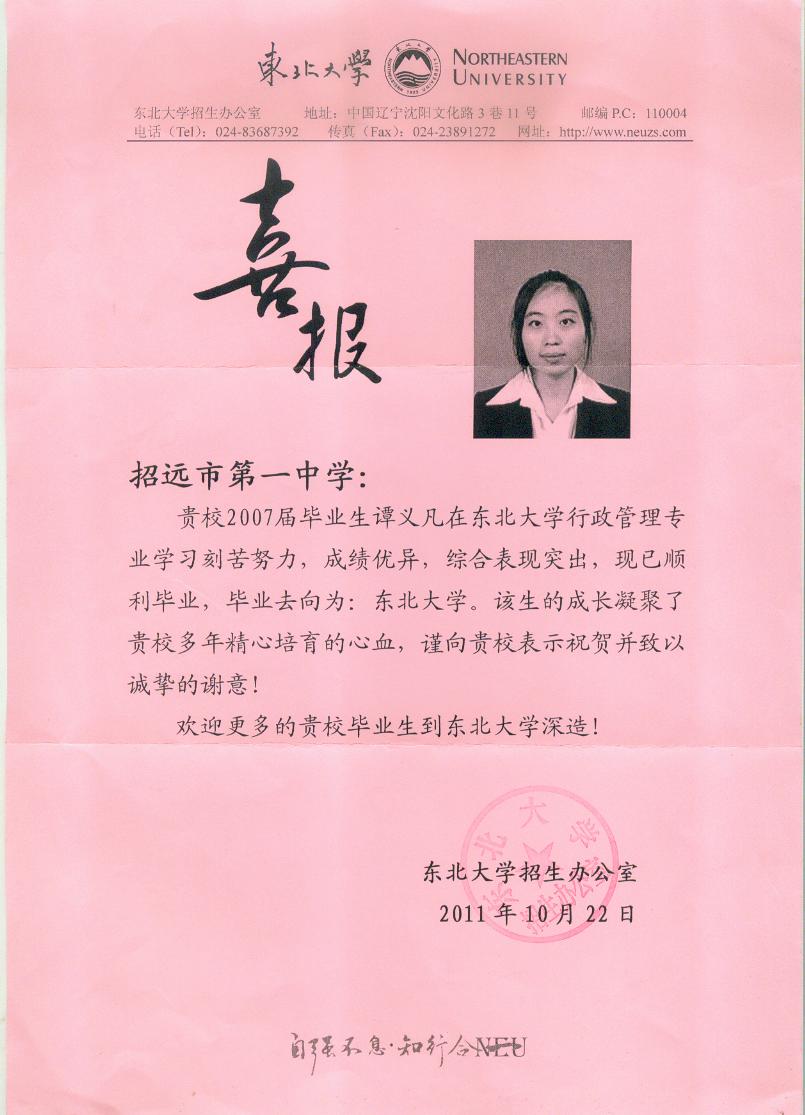 東北大學 NORTHEASTERN UNIVERSITY
东北大学招生办公室 地址：中国辽宁沈阳文化路 3 巷 11 号 邮编 P.C：110004
电话（Tel）：024-83687392 传真（Fax）：024-23891272 网址：http://www.neuzs.com
喜报
招远市第一中学：
贵校2007届毕业生谭义凡在东北大学行政管理专
业学习刻苦努力，成绩优异，综合表现突出，现已顺
利毕业，毕业去向为：东北大学。该生的成长凝聚了
贵校多年精心培育的心血，谨向贵校表示祝贺并致以
诚挚的谢意！
欢迎更多的贵校毕业生到东北大学深造！
东北大学
招生办公室
东北大学招生办公室
2011 年 10 月 22 日
自强不息·知行合一 NEU